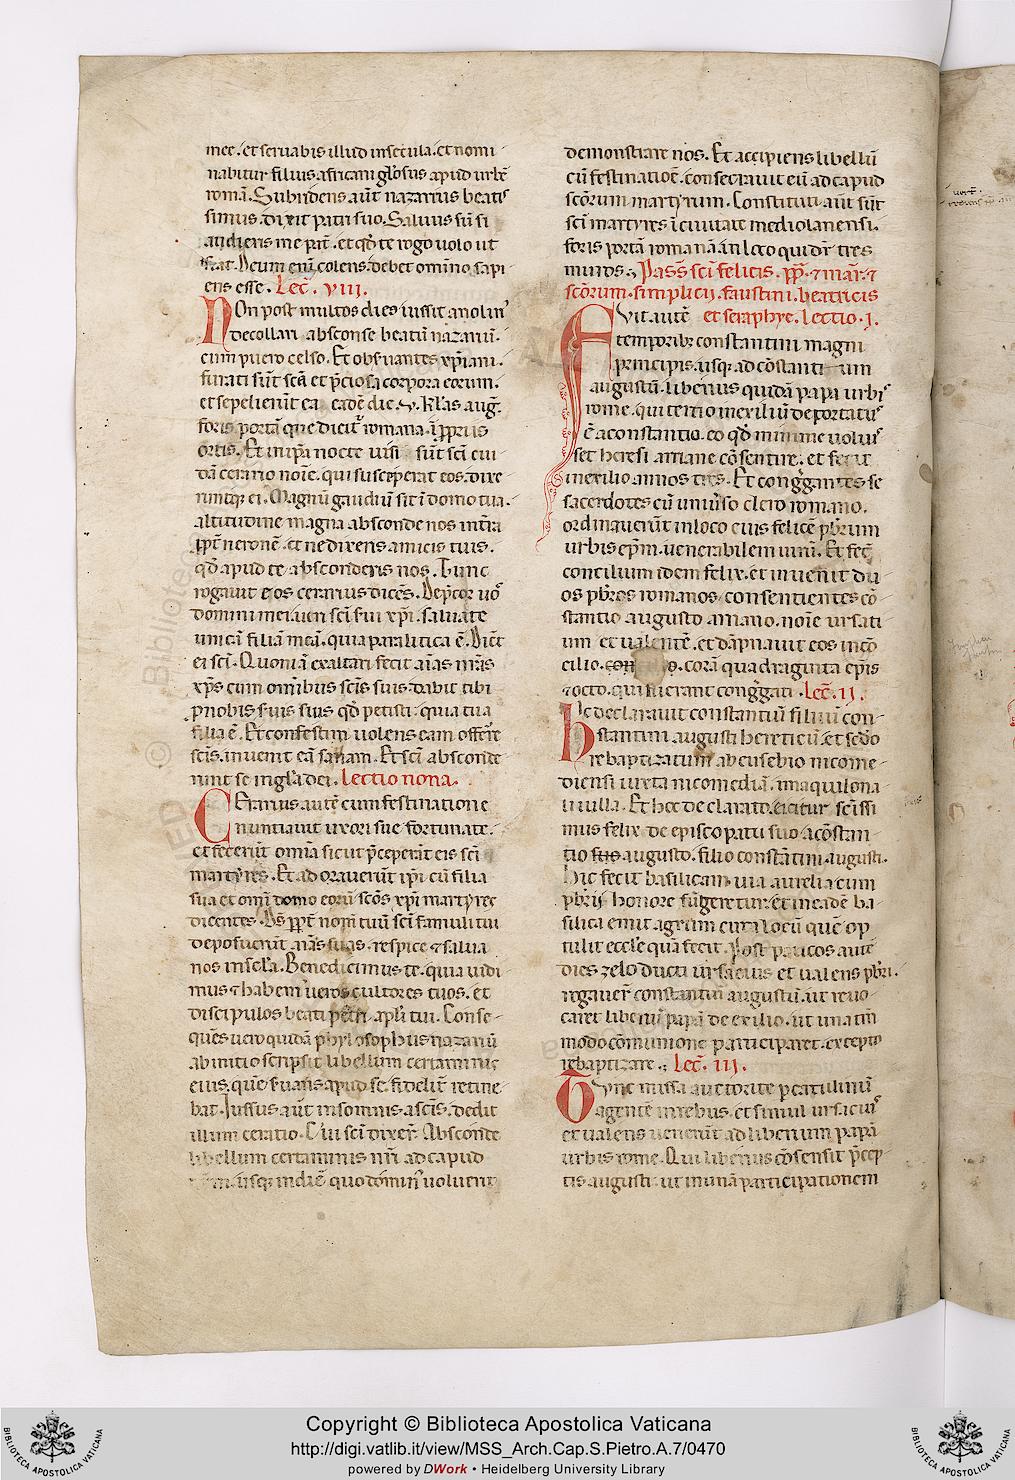 mee. et seruabis illud insecula. et nomi
nabitur filius africani gl̅osus apud urbē
romā. Subridens aūt nazarius beatis
simus. dixit patri suo. Saluus sū si
audieris me pat̅. et qd̅ te rogo uolo ut
fiat. Deum eni̅ colens. debet omi̅no sapi
ens esse. Lec̅. viii.
NOn post multos dies iussit anolin᷒
decollari absconse beatū nazariū.
cum puero celso. Et obs̅uantes xp̅iani.
furati sūt sc̅a et p̅ciosa corpora eorum.
et sepelierūt ea eadē die. v. kl̅as aug̅.
foris portā que dicit᷒ romana ī pp̅riis
ortis. Et in ip̅a nocte uisi sūt sc̅i cui
dā ceratio noi̅e. qui susceperat eos. dixe
runtq; ei. Magnū gaudiū sit ī domo tua.
altitudine magna absconde nos int̅ra
pp̅t̅ neronē. et ne dixeris amicis tuis.
qd̅ apud te absconderis nos. Tunc
rogauit eos ceratius dicēs. Dep̅cor uos
domini mei uiri sc̅i s̅ui xp̅i. saluate
unicā filiā meā. quia paralitica ē. Dicūt
ei sc̅i. Quoniā exaltari fecit ai̅as nr̅as
xp̅s cum omnibus sc̅is suis dabit tibi
p̅nobis s̅uis suis qd̅ petisti. quia tua
filia ē. Et confestim uolens eam offerre
sc̅is. inuenit eā sanam. Et sc̅i absconde
runt se in gl̅a dei. Lectio nona.
CEratius autē cum festinatione
nuntiauit uxori sue fortunate.
et fecerūt omi̅a sicut p̅ceperāt eis sc̅i
martyres. Et ad orauerūt ip̅i cū filia
sua et omi̅ domo eorū sc̅os xp̅i martyres
dicentes. Ds̅ pp̅t̅ nom̅ tuū sc̅i famuli tui
deposuerūt ai̅as suas. respice & salua
nos in sc̅la. Benedicimus te. quia uidi
mus & habem᷒ ueros cultores tuos. et
discipulos beati petri apl̅i tui. Conse
quēs uero quidā phylosophus nazariū
ab initio scripsit libellum certaminis
eius. quē s̅uans apud se. fidelit̅ retine
bat. Iussus aūt in somnis a sc̅is. dedit
illum ceratio. Cui sc̅i dixer̅. Absconde
libellum certaminis nr̅i ad capud
usq; in diē quo domin᷒ uoluerit
demonstrare nos. Et accipiens libellū
cū festinatioe̅. consecrauit eū ad capud
sc̅orum martyrum. Constituti aūt sūt
sc̅i martyres ī ciuitate mediolanensi.
foris portā romanā in loco qui dr̅ tres
muros. Pass̅ sc̅i felicis. pp̅. & mar̅. &
sc̅orum. simplicii. faustini. beatricis
FVit autē et seraphye. Lectio. I.
temporib; constantini magni
principis. usq; ad cōstanti um
augustū. liberius quidā papa urbis
rome. qui tertio in exiliū deportatus
ē a constantio. eo qd̅ minime uoluis
set heresi arriane cōsentire. et fecit
in exilio annos tres. Et cong̅gantes se
sacerdotes cū uniu̅so clero romano.
ordinauerūt in loco eius felicē pb̅rum
urbis ep̅m. uenerabilem uirū. Et fec̅
concilium idem felix. et inuenit du
os pb̅ros romanos consentientes cō
stantio augusto ariano. noi̅e ursati
um et ualentē. et dāpnauit eos in cō
cilio. corā quadraginta ep̅is
& octo. qui fuerant cong̅gati. Lec̅. II.
HIc declarauit constantiū filium con
stantini augusti hereticū. et sed̅o
rebaptizatum ab eusebio nicome
diensi iuxta nicomediā. in aquilona
li uilla. Et hoc declarato. eicitur sc̅issi
mus felix de episcopatu suo a cōstan
tio augusto. filio constātini. augusti.
Hic fecit basilicam uia aurelia cum
pb̅rii honore fūgeretur. et in eadē ba
silica emit agrum circa locū quē op
tulit eccl̅e quā fecit. Post paucos autē
dies zelo ducti ursacius et ualens pb̅ri.
rogauer̅ constantiū augustū. ut reuo
caret liberiū papā de exilio. ut una tm̅
modo cōmunione participaret. excepto
rebaptizare. Lec̅. III.
TVnc missa auctoritate p catulinū
agentē in rebus. et simul ursacius
et ualens uenerūt ad liberium papā
urbis rome. Qui liberius cōsensit p̅cep
tis augusti. ut in unā participationem
Copyright © Biblioteca Apostolica Vaticana
http://digi.vatlib.it/view/MSS_Arch.Cap.S.Pietro.A.7/0470
powered by DWork • Heidelberg University Library
BIBLIOTECA APOSTOLICA VATICANA
BIBLIOTECA APOSTOLICA VATICANA